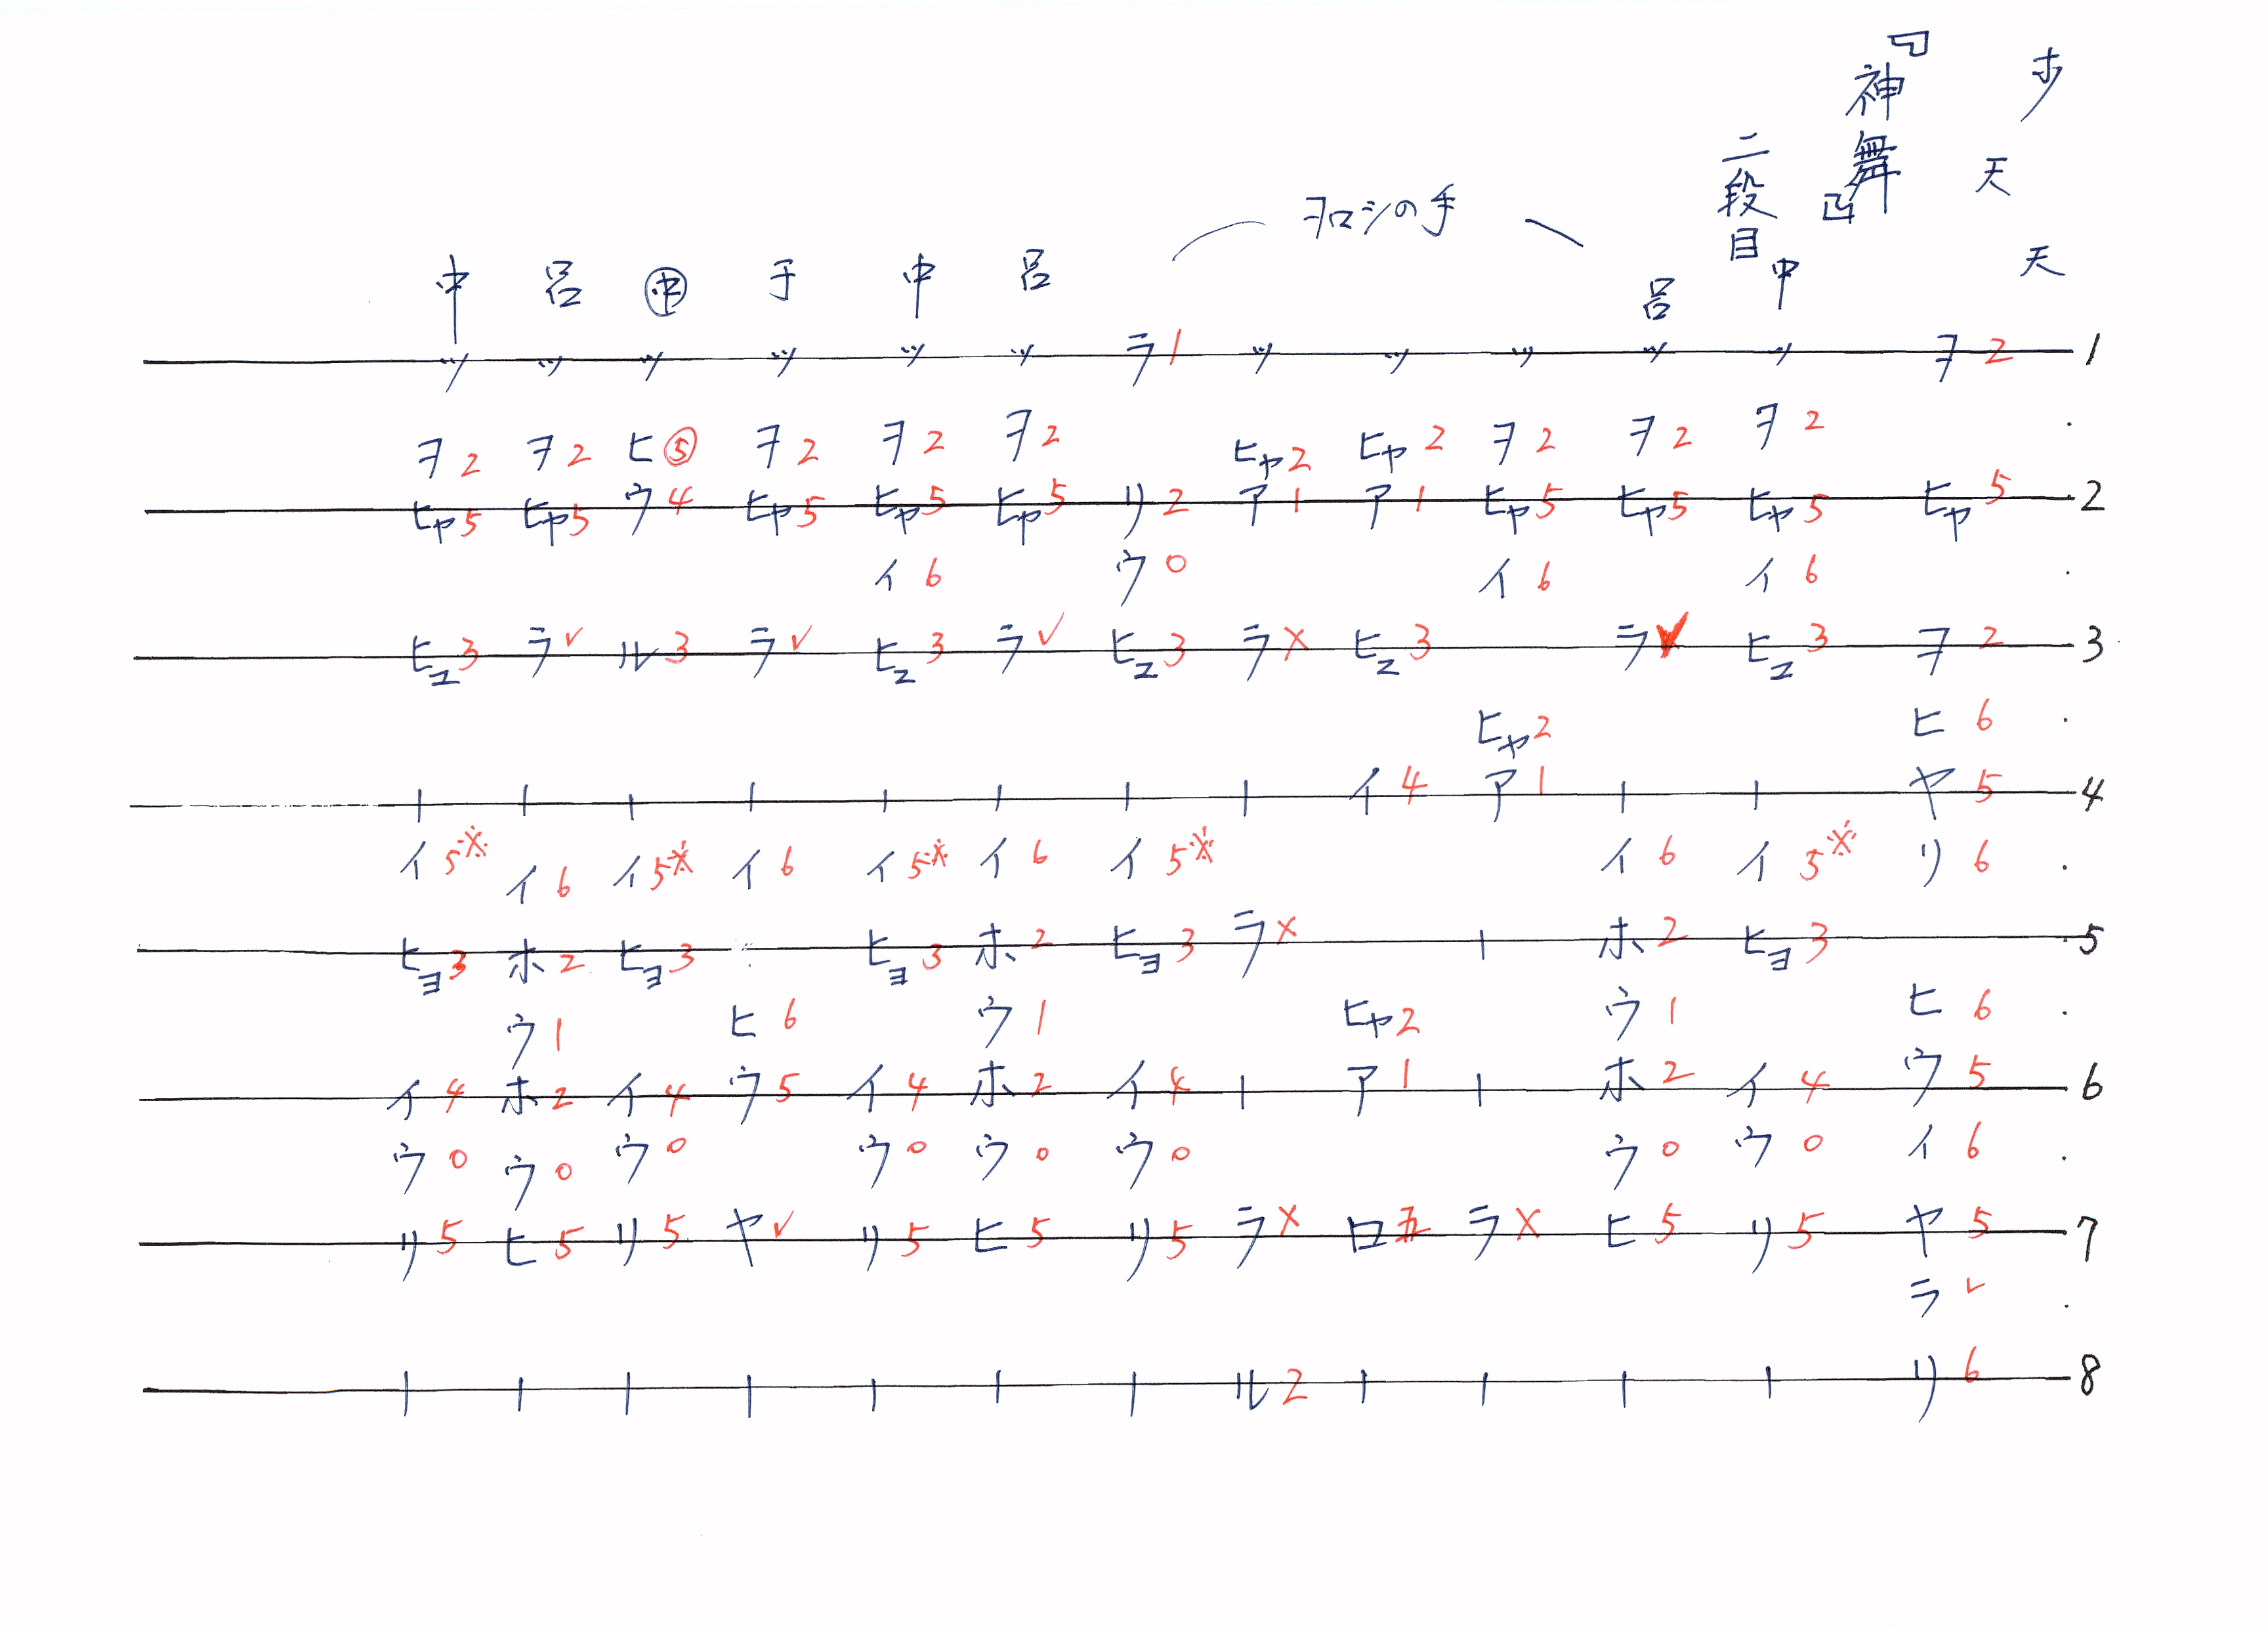 天
天
『神舞』
二段目
1 2 3 4 5 6 7 8
ヲ2 ヒャ5 ヲ2 ヒ6 ヤ5 リ6 ヒ6 ウ5 イ6 ヤ5 ラ✓ リ6
中 ツ ヲ2 ヒャ5 イ6 ヒュ3 イ5※ ヒョ3 イ4 ウ0 リ5
呂 ツ ヲ2 ヒャ5 ラ✓ イ6 ホ2 ウ1 ホ2 ウ0 ヒ5
ヲロシの手
ツ ヲ2 ヒャ5 イ6 ヒャ2 ア1 ラ×
ツ ヒャ2 ア1 ヒュ3 イ4 ヒャ2 ア1 ロ五
ツ ヒャ2 ア1 ラ× ラ× ラ× ル2
ラ1 リ2 ウ0 ヒュ3 イ5※ ヒョ3 イ4 ウ0 リ5
呂 ツ ヲ2 ヒャ5 ラ✓ イ6 ホ2 ウ1 ホ2 ウ0 ヒ5
中 ツ ヲ2 ヒャ5 イ6 ヒュ3 イ5※ ヒョ3 イ4 ウ0 リ5
干 ツ ヲ2 ヒャ5 ラ✓ イ6 ヒ6 ウ5 ヤ✓
㊥ ツ ヒ⑤ ウ4 ル3 イ5※ ヒョ3 イ4 ウ0 リ5
呂 ツ ヲ2 ヒャ5 ラ✓ イ6 ホ2 ウ1 ホ2 ウ0 ヒ5
中 ツ ヲ2 ヒャ5 ヒュ3 イ5※ ヒョ3 イ4 ウ0 リ5